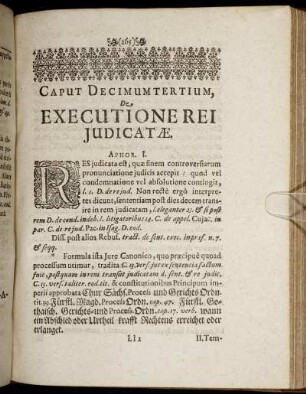 (265)
CAPUT DECIMUMTERTIUM,
De
EXECUTIONE REI
JUDICATÆ.
APHOR. I.
RES judicata est, quæ finem controversiarum
pronunciatione judicis accepit: quod vel
condemnatione vel absolutione contingit,
l. 1. D. de re jud. Non rectè ergò interpre-
tes dicunt, sententiam post dies decem transi-
re in rem judicatam, l. eleganter 23. & si post
rem D. de cond. indeb. l. brigatoribus C. de appel. Cujac. in
par. C. de re jud. Pac. in Isag. D. eod.
Diss. post alios Rebuf. tract. de sent. exec. in præf. n. 7.
& seqq.
Formula ista Jure Canonico, quo præcipuè quoad
processum utimur, tradita C. 15. vers. jure sententia factum
fuit, postquam in rem transit judicatam d. sent. & re judic.
C. 13. vers. taliter. eod. tit. & constitutionibus Principum im-
perii approbata Chur Sächs. Proceß und Gerichts Ordn.
tit. 39. Fürstl. Magd. Proceß Ordn. cap. 47. Fürstl. Go-
thaisch. Gerichts- und Proceß Ordn. cap. 17. verb. wann
ein Abschied oder Urtheil krafft Rechtens erreichet oder
erlanget.
Ll 2
II. Tem-